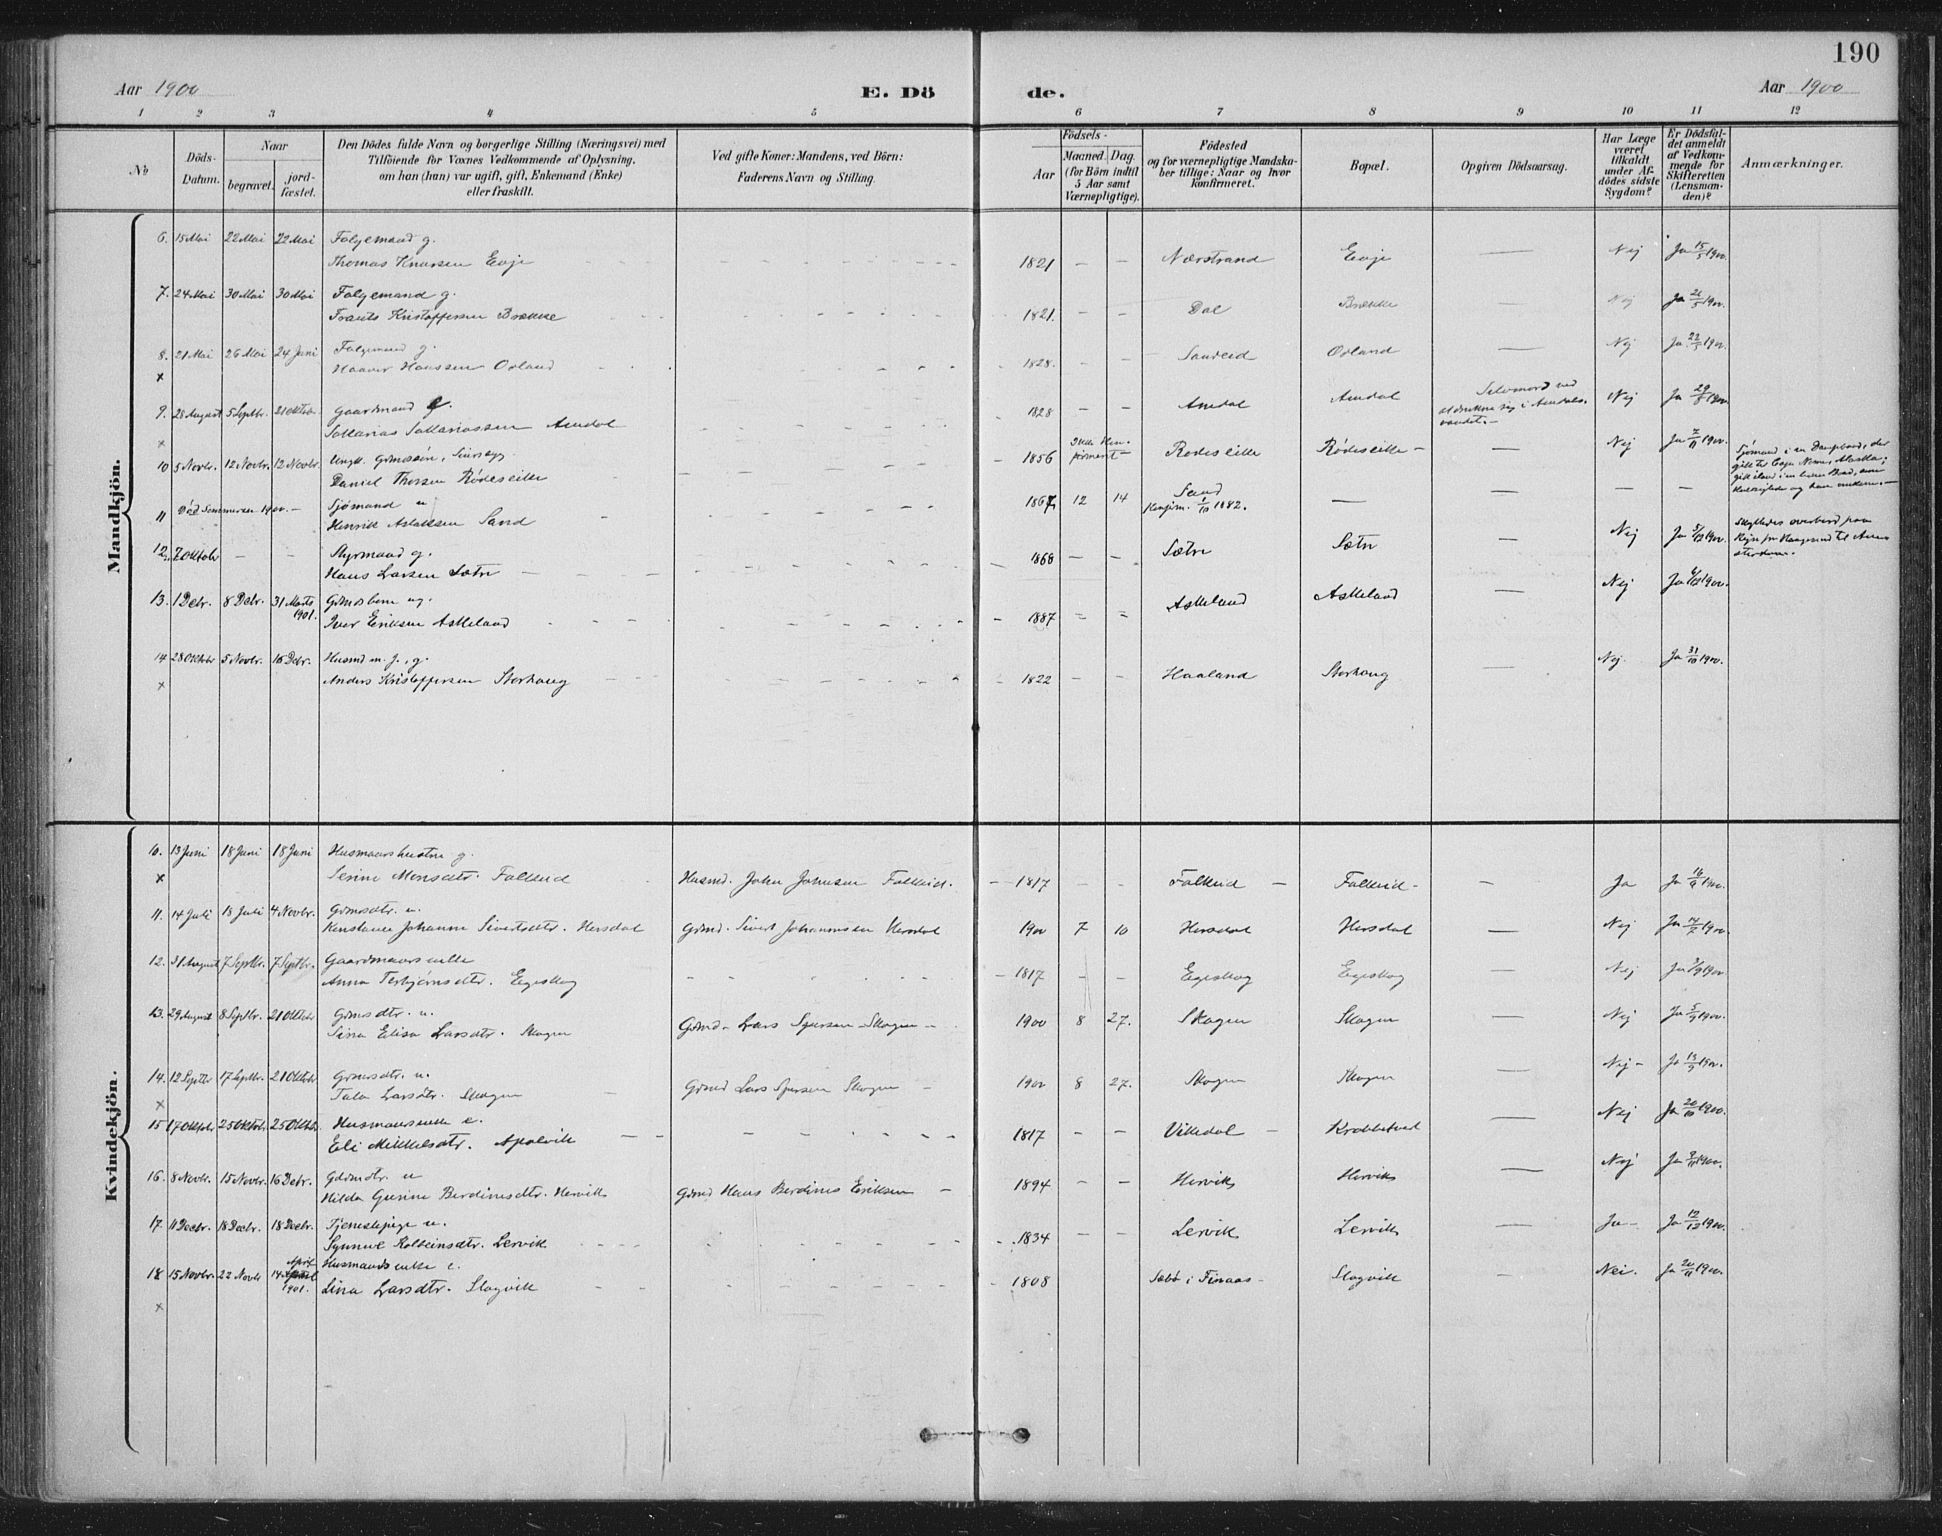 190
Aar 1900
E. Dö
de.
Aar 1900
1 2 3 4 5 6 7 8 9 10 11 12
No
Döds-
Datum.
Naar
begravet.
jord-
fæstet.
Den Dödes fulde Navn og borgerlige Stilling (Næringsvei) med
Tilföiende for Voxnes Vedkommende af Oplysning,
om han (hun) var ugift, gift, Enkemand (Enke)
eller fraskilt.
Ved gifte Koner: Mandens, ved Börn:
Faderens Navn og Stilling.
Födsels-
Aar
Maaned. Dag.
(for Börn indtil
5 Aar samt
Værnepligtige).
Födested
og for værnepligtige Mandska-
ber tillige: Naar og hvor
konfirmeret.
Bopæl.
Opgiven Dödsaarsag.
Har Læge
været
tilkaldt
under Af-
dödes sidste
Sygdom?
Er Dödsfal-
det anmeldt
af Vedkom-
mende for
Skifteretten
(Lensman-
den)?
Anmærkninger.
Mandkjön.
6. 15 Mai 22 Mai 22 Mai Folgemand g.
Thomas Knutsen Evje 1821 - - Nærstrand Evje — Nej Ja 15/5 1900.
7. 24 Mai 30 Mai 30 Mai Folgemand g.
Kristoffersen Brække 1821. - - Dal Brække — Nej Ja 1900.
8. 21 Mai 26 Mai 24 Juni Folgemand g.
x Haaver Hanssen Opland 1828. - - Sandeid Opland — Nej Ja 22/5 1900.
9. 28 August 5 Septbr. 21 Oktbr. Gaardmand g.
x Amdal 1828 - - Amdal Amdal Selvmord ved
at drukne sig i Amdals-
vandet.- Nej Ja 29/8 1900
10 5 Novbr. 12 Novbr. 12 Novbr. Ungk. Gdmssøn,
Daniel Thorsen Rødeseike 1856 Rødeseike Rødeseike - — Nej Ja 7/11 1900.
11 Død Sommeren 1900. - Sjømand u
Henrik Aslaksen Sand 1867 12 14 Sand
Konfirm. 1/10 1882. — — — —
Sjømand i en Dampbaad, der
gik til Cape Nome, Alaska;
gik iland i en Baad, som
kuldseilede og han omkom.-
12. 7 Oktobr - - Styrmand g.
Hans Larsen Sætre 1868 - - Sætre Sætre — Nej Ja 5/12 1900.
Skylledes overbord paa
Rejse fra Haugesund til Am-
sterdam.
13. 1 Debr. 8 Debr. 31 Marts
1901. Gdmds ug.
Iver Eriksen Askeland 1887 = = Askeland Askeland — Nej Ja 1900.
14 28 Oktobr 5 Novbr. 16 Debr. Husmd m. j., g.
x Anders Kristoffersen Storhaug 1822 - - Haaland Storhaug — Nej. Ja 31/10 1900.
Kvindekjön.
10. 13 Juni 18 Juni 18 Juni Husmandshustru g.
x Serine Monsdtr. Falkeid Husmd. John Johnsen Falkeid. 1817 - - Falkeid - Falkeid - — Ja Ja 1900.
11. 14 Juli 18 Juli 4 Novbr. Gdmsdtr. u.
Konstanse Johanne Sivertsdtr. Hersdal Gdmd. Sivert Johannesen Hersdal 1900 7 10 Hersdal Hersdal — Nej Ja 14/7 1900
12. 31 August 7 Septbr. 7 Septbr. Gaardmandsenke
Anna Torbjørnsdtr. Egeskog 1817 - - Egeskog Egeskog — Nej Ja 1900
13. 29 August 8 Septbr. 21 Oktobr Gdmsdtr. u.
Sina Elisa Larsdtr. Skogen Gdmd. Lars Sjursen Skogen 1900 8 27. Skogen Skogen — Nej Ja 5/9 1900.
14. 12 Septbr 17 Septbr. 21 Oktobr Gdmsdtr. u.
x Larsdtr. Skogen Gdmd Lars Sjursen Skogen 1900 8 27. Skogen Skogen — Nej - Ja 13/9 1900.
15 17 Oktobr 25 Oktobr. 25 Oktbr. Husmansenke e.
Eli Mikkelsdtr. Apalvik 1817 - - Vikedal - — Nej Ja 20/10 1900.
16. 8 Novbr. 15 Novbr. 16 Debr. Gdsmdtr. u
Hilda Gurine Berdinesdtr. Hervik Gdmd Hans Berdines Eriksen 1894 - - Hervik Hervik — Nej Ja 9/11 1900.
17. 11 Decbr. 18 Decbr. 18 Decbr. Tjenestepige u.
Synnuve Kolbeinsdtr. Lervik 1834 Lervik Lervik — Ja - Ja 12/12 1900.
18 15 Novbr. 22 Novbr 14 April
1901. Husmandsenke e.
x Lina Larsdtr. Slogvik 1808 Sæbø i Finaas Slogvik — Nei. Ja 20/11 1900.